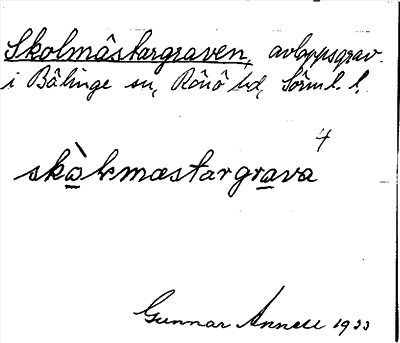 Skolmästargraven, avloppsgrav.
i Bälinge sn, Rönö hd, Sörml. l.
4
skòlmæstargrava
Gunnar Annell 1933